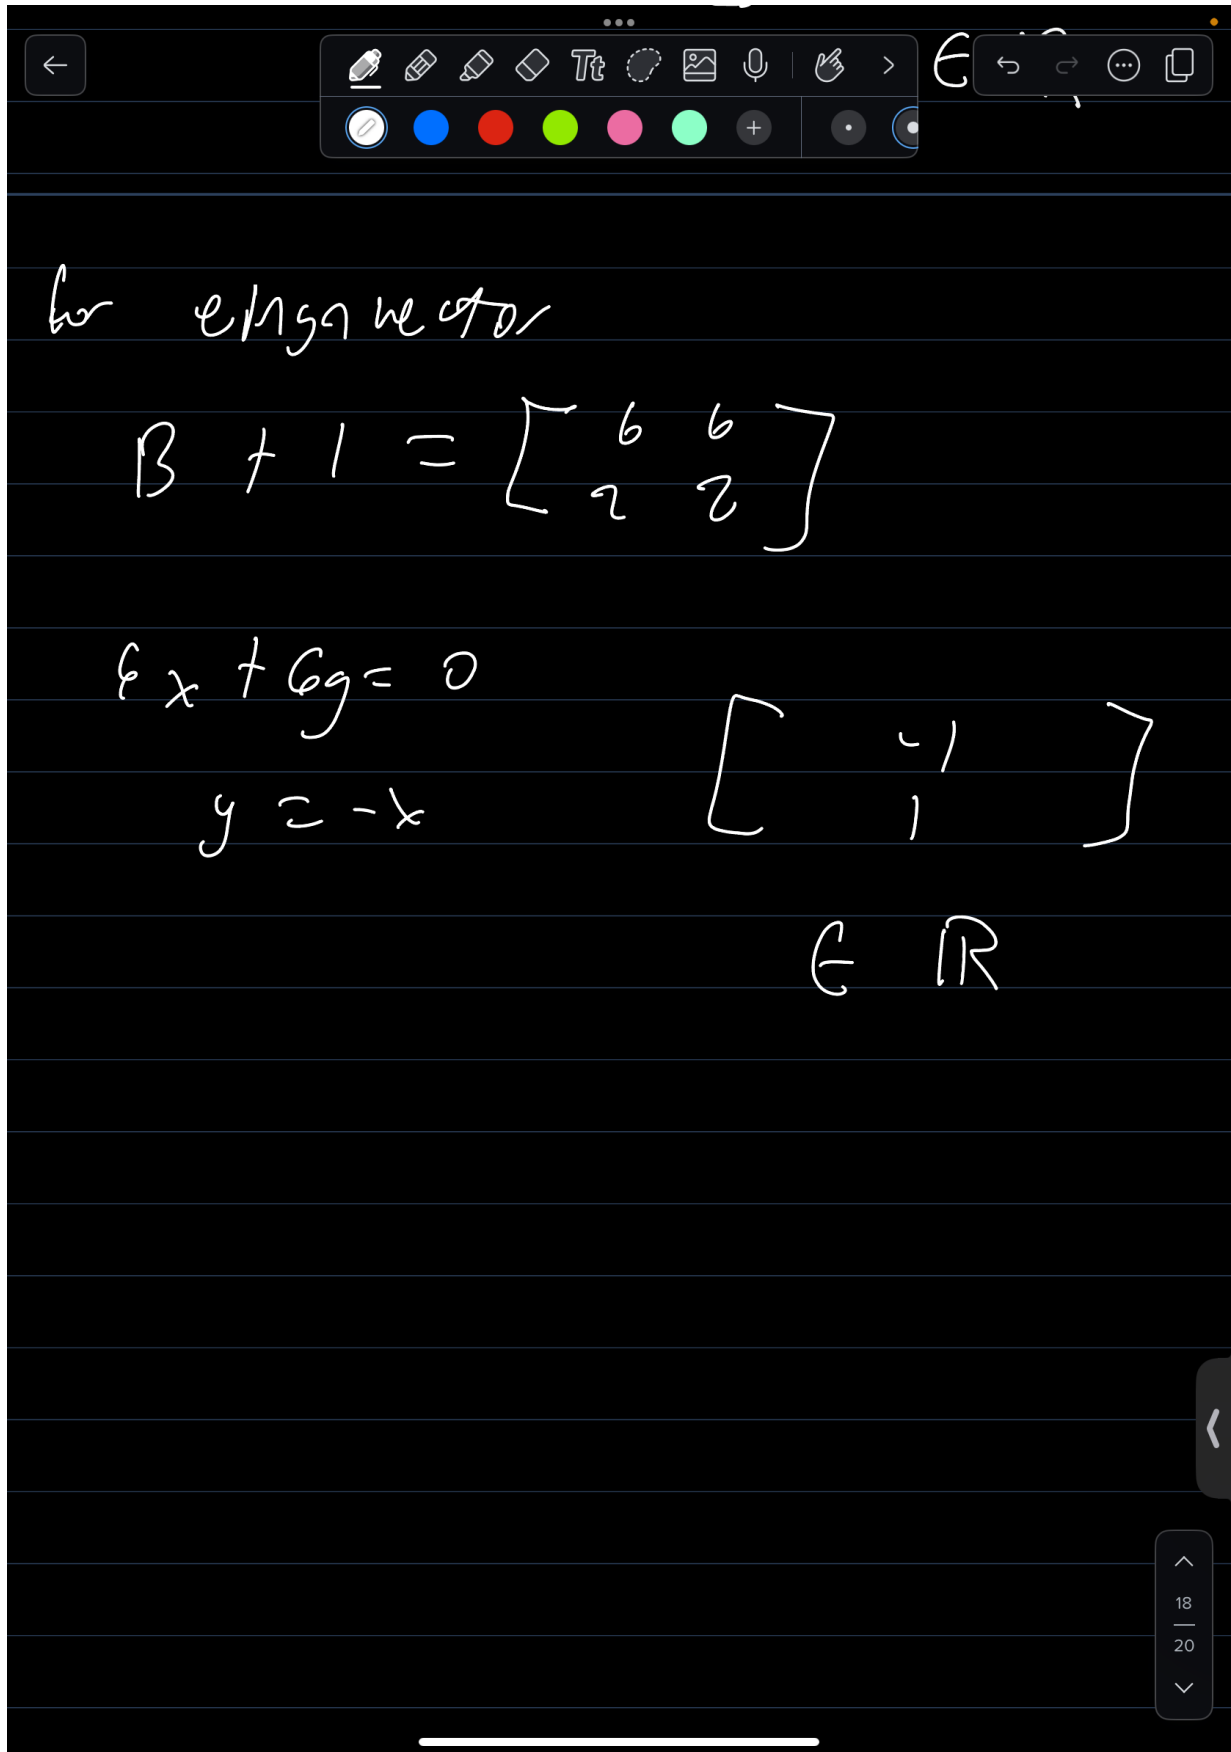 Tt
∈ R
for eigenvector
B + 1 = [ 6 6
2 2 ]
6x + 6y = 0
y = -x
[ -1
1 ]
∈ ℝ
18
20